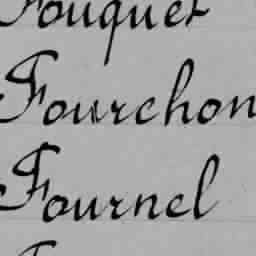 Fouquet
Fourchon
Fournel